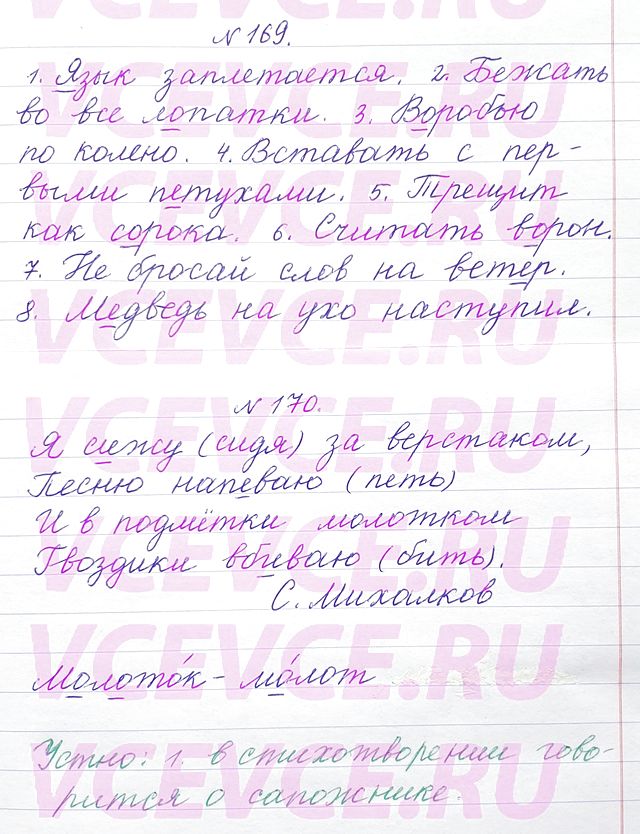 № 169.
1. Язык заплетается. 2. Бежать
во все лопатки. 3. Воробью
по колено. 4. Вставать с пер-
выми петухами. 5. Трещит
как сорока. 6. Считать ворон.
7. Не бросай слов на ветер.
8. Медведь на ухо наступил.
№ 170.
Я сижу (сидя) за верстаком,
Песню напеваю (петь)
И в подмётки молотком
Гвоздики вбиваю (бить).
С. Михалков
Молото́к - мо́лот
Устно: 1. в стихотворении гово-
рится о сапожнике.
VCEVCE.RU
VCEVCE.RU
VCEVCE.RU
VCEVCE.RU
VCEVCE.RU
VCEVCE.RU
VCEVCE.RU
VCEVCE.RU